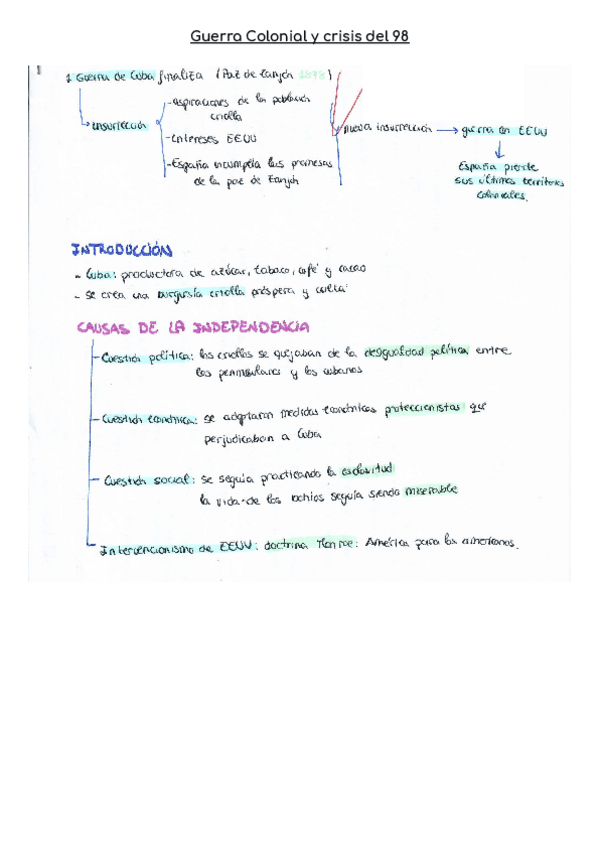 Guerra Colonial y crisis del 98
1 Guerra de Cuba finaliza (Paz de Zanjón 1878)
insurrección
-aspiraciones de la población
criolla
-intereses EEUU
-España incumplía las promesas
de la paz de Zanjón
nueva insurrección → guerra con EEUU
España pierde
sus últimos territorios
coloniales.
INTRODUCCIÓN
- Cuba: productora de azúcar, tabaco, café y cacao
- se crea una burguesía criolla próspera y culta
CAUSAS DE LA INDEPENDENCIA
-Cuestión política: los criollos se quejaban de la desigualdad política entre
los peninsulares y los cubanos
-Cuestión económica: se adoptaron medidas económicas proteccionistas que
perjudicaban a Cuba
-Cuestión social: se seguía practicando la esclavitud
la vida de los seguía siendo miserable
Intervencionismo de EEUU: doctrina Monroe: América para los americanos.